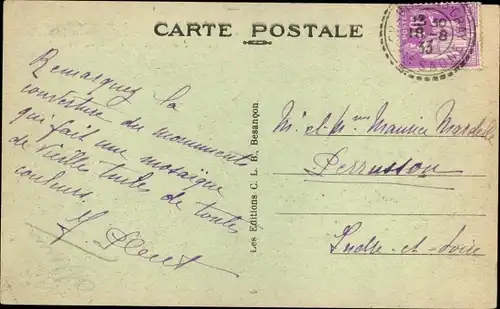 CARTE POSTALE
Remarquez la
couverture du monument
qui fait une mosaïque
de vieilles tuiles de toutes
couleurs.
Les Editions C. L. B., Besançon.
13 30
18 - 8
33
M. et Mme Maurice
Perrusson
Indre-et-Loire